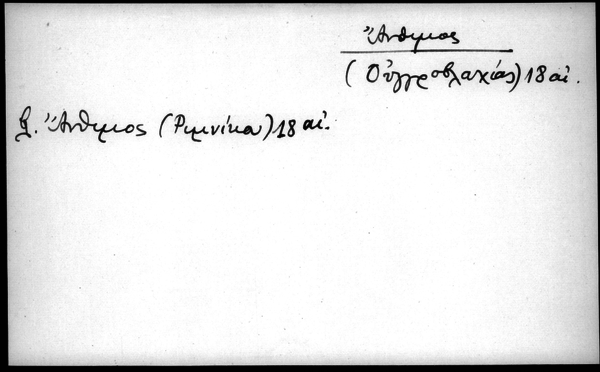 Ἄνθιμος
(Οὐγγροβλαχίας) 18 αἰ.
β. Ἄνθιμος (Ριμνίκου) 18 αἰ.